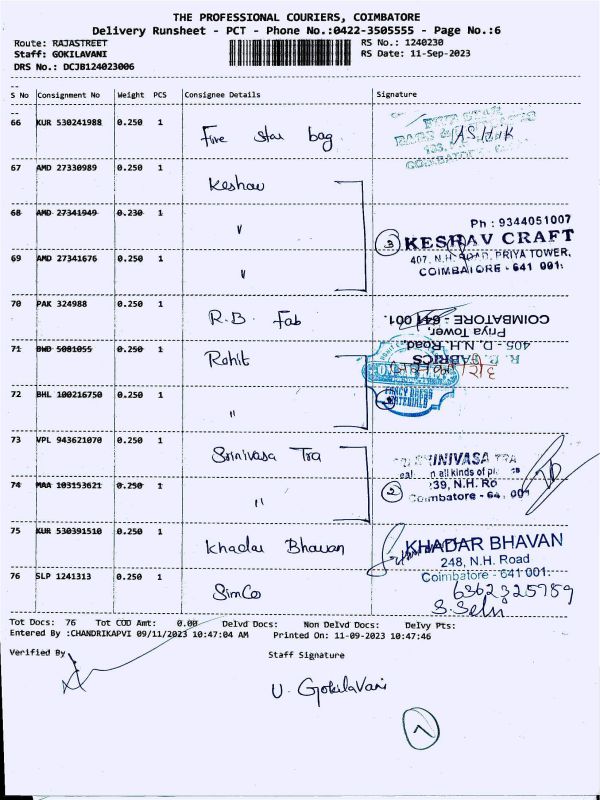 THE PROFESSIONAL COURIERS, COIMBATORE
Delivery Runsheet - PCT - Phone No.:0422-3505555 - Page No.:6
Route: RAJASTREET RS No.: 1240230
Staff: GOKILAVANI RS Date: 11-Sep-2023
DRS No.: DCJB124023006
S No Consignment No Weight PCS Consignee Details Signature
66 KUR 530241988 0.250 1 Five Star bag
FIVE STAR
ASHIK
COIMBATORE
67 AMD 27330989 0.250 1 Keshav
68 AMD 27341949 0.230 1 "
Ph : 9344051007
3 KESHAV CRAFT
407, N.H. ROAD, PRIYA TOWER,
COIMBATORE - 641 001.
69 AMD 27341676 0.250 1 "
70 PAK 324988 0.250 1 R.B. Fab
COIMBATORE - 641 001.
Priya Tower,
405 - D, N.H. Road,
FABRICS
71 BWD 5081055 0.250 1 Rohit
FANCY DRESS
MATERIALS
72 BHL 100216750 0.250 1 "
73 VPL 943621070 0.250 1 Srinivasa Tra
SRINIVASA TRA
in all kinds of
239, N.H. Ro
2 Coimbatore - 64 001
74 MAA 103153621 0.250 1 "
75 KUR 530391510 0.250 1 Khadar Bhavan
KHADAR BHAVAN
248, N.H. Road
Coimbatore - 641 001.
76 SLP 1241313 0.250 1 SimCo
6362325759
S. Selvi
Tot Docs: 76 Tot COD Amt: 0.00 Delvd Docs: Non Delvd Docs: Delvy Pts:
Entered By :CHANDRIKAPVI 09/11/2023 10:47:04 AM Printed On: 11-09-2023 10:47:46
Verified By Staff Signature
U. GokilaVani